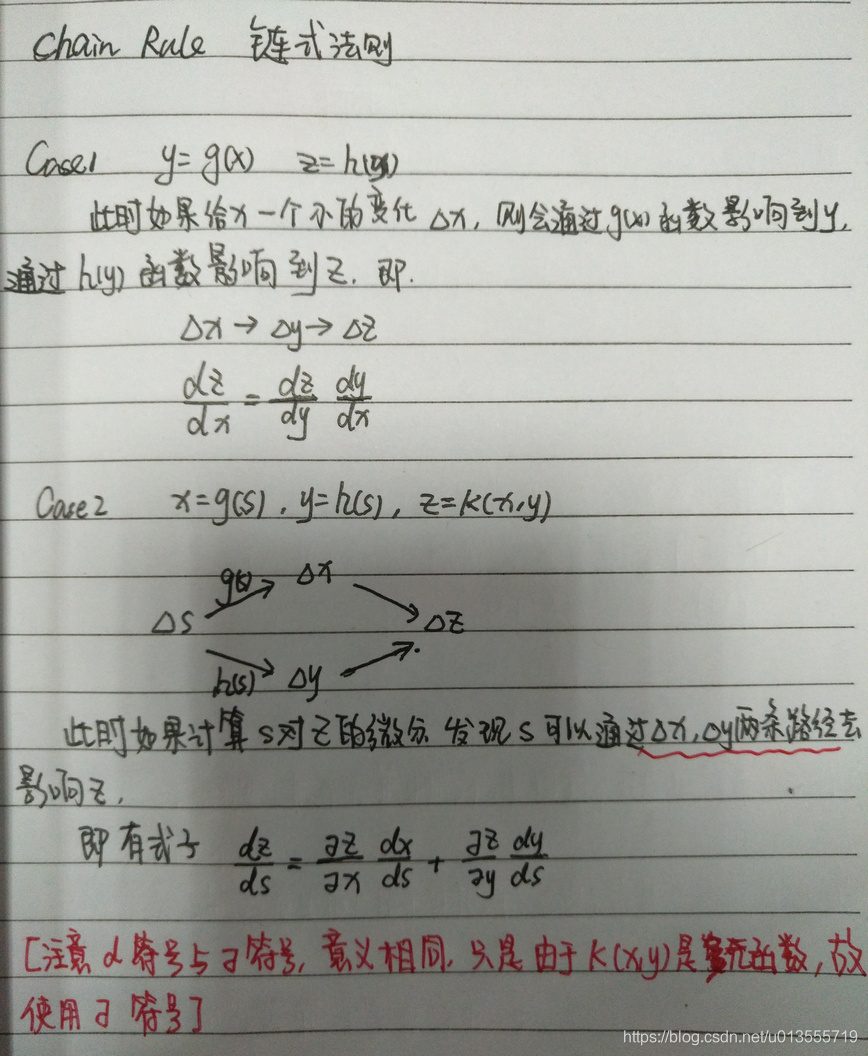 Chain Rule 链式法则
Case1 y=g(x) z=h(y)
此时如果给x一个小的变化 Δx, 则会通过g(x)函数影响到y,
通过h(y)函数影响到z. 即.
Δx→Δy→Δz
dz/dx = dz/dy dy/dx
Case2 x=g(s), y=h(s), z=k(x,y)
g(s) Δx
Δs Δz
h(s) Δy
此时如果计算s对z的微分. 发现s可以通过Δx,Δy两条路径去
影响z,
即有式子 dz/ds = ∂z/∂x dx/ds + ∂z/∂y dy/ds
[注意d符号与∂符号, 意义相同, 只是由于k(x,y)是多元函数, 故
使用∂符号]
https://blog.csdn.net/u013555719